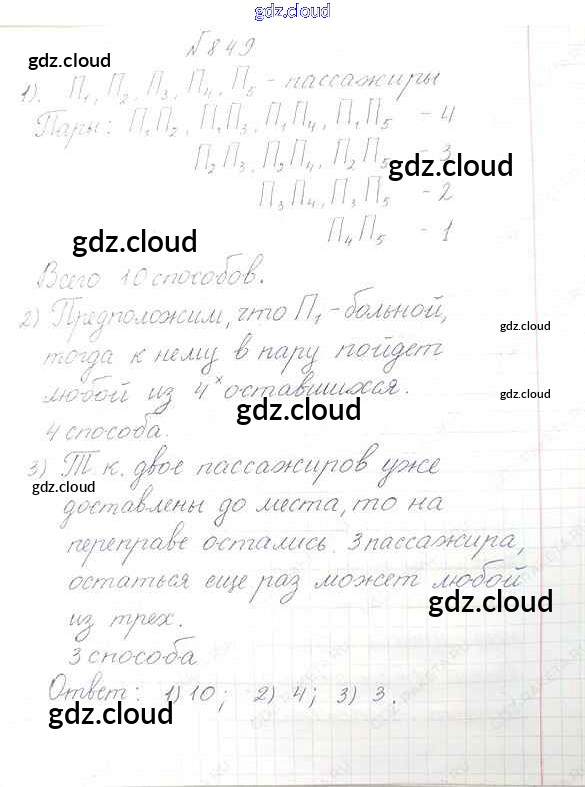 gdz.cloud
№849
gdz.cloud
1). П₁, П₂, П₃, П₄, П₅ - пассажиры
Пары: П₁П₂, П₁П₃, П₁П₄, П₁П₅ - 4
П₂П₃, П₂П₄, П₂П₅ - 3
gdz.cloud
П₃П₄, П₃П₅ - 2
П₄П₅ - 1
gdz.cloud
Всего 10 способов.
2) Предположим, что П₁ - больной,
gdz.cloud
тогда к нему в пару пойдет
любой из 4ˣ оставшихся.
gdz.cloud
gdz.cloud
4 способа.
3) Т.к. двое пассажиров уже
gdz.cloud
доставлены до места, то на
переправе остались 3 пассажира,
остаться еще раз может любой
gdz.cloud
из трех.
3 способа
Ответ: 1) 10; 2) 4; 3) 3.
gdz.cloud